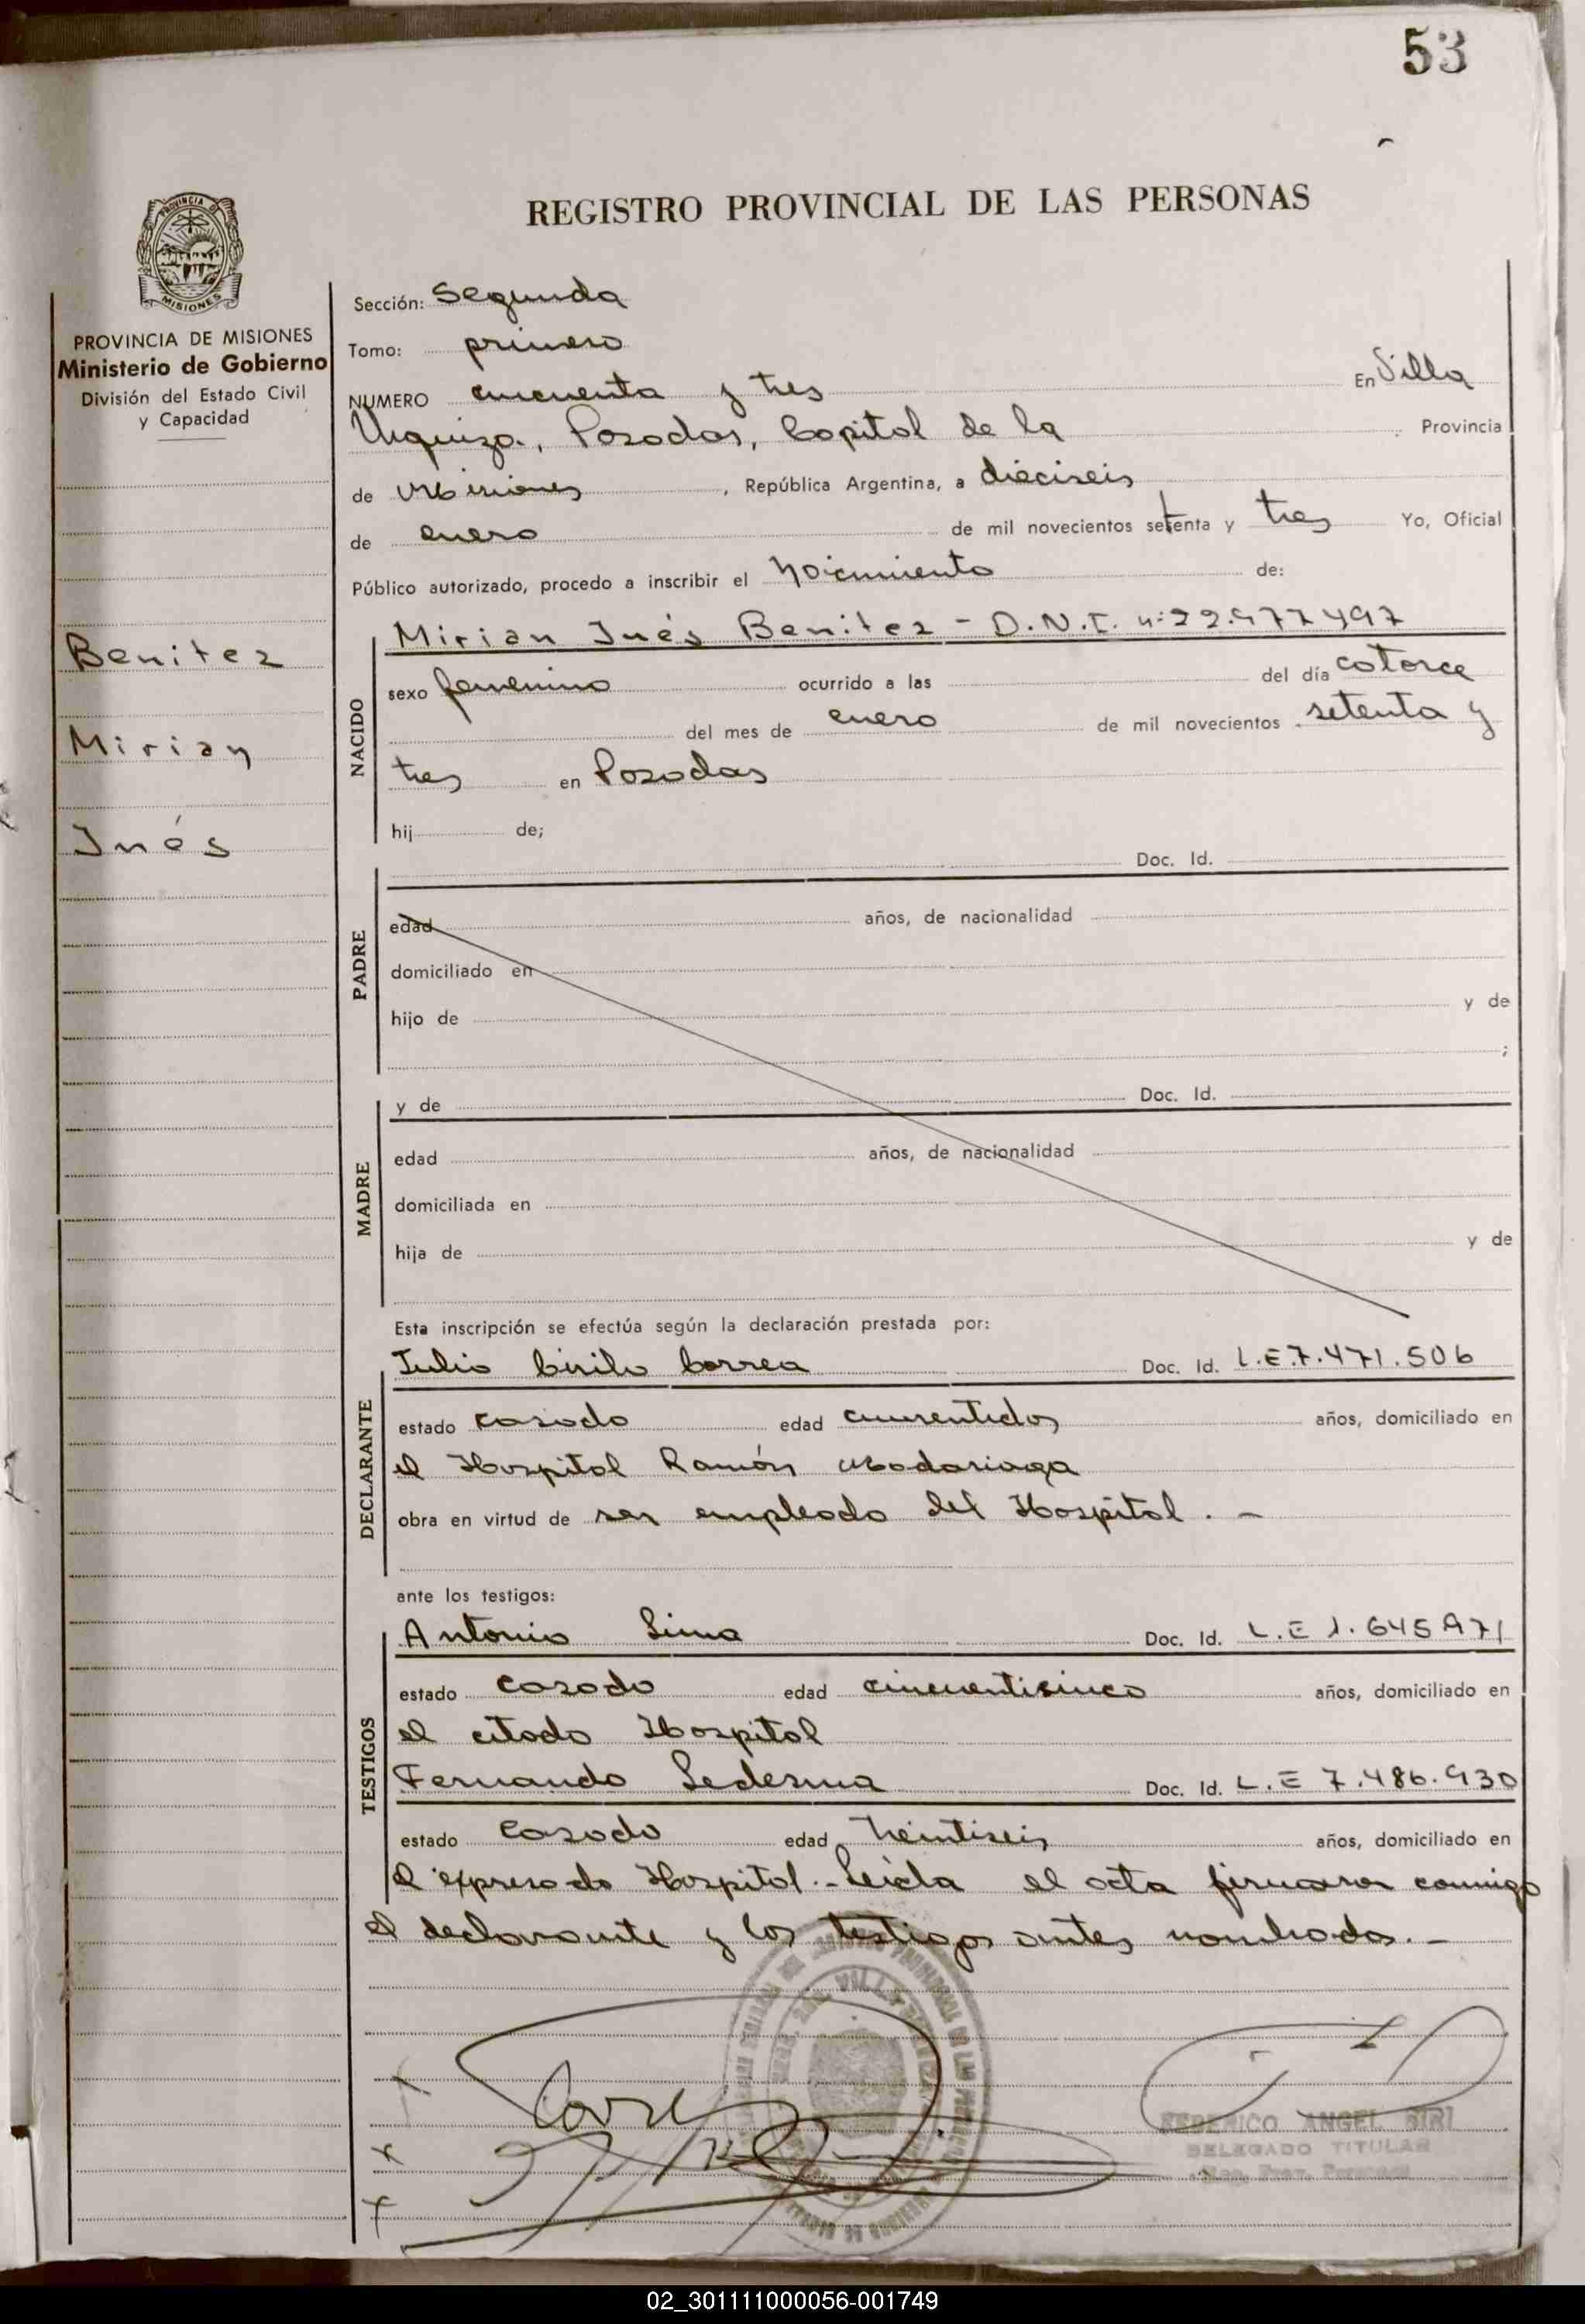 53
REGISTRO PROVINCIAL DE LAS PERSONAS
PROVINCIA DE MISIONES
Ministerio de Gobierno
División del Estado Civil
y Capacidad
Benitez
Mirian
Inés
Sección: Segunda
Tomo: primero
NUMERO cincuenta y tres En Villa
Urquiza, Posadas, Capital de la Provincia
de Misiones, República Argentina, a dieciseis
de enero de mil novecientos setenta y tres Yo, Oficial
Público autorizado, procedo a inscribir el Nacimiento de:
NACIDO
Mirian Inés Benitez - D.N.I. nº 22.977497
sexo femenino ocurrido a las del día catorce
del mes de enero de mil novecientos setenta y
tres en Posadas
hij de;
Doc. Id.
PADRE
edad años, de nacionalidad
domiciliado en
hijo de y de
;
y de Doc. Id.
MADRE
edad años, de nacionalidad
domiciliada en
hija de y de
Esta inscripción se efectúa según la declaración prestada por:
Julio Cirilo Correa Doc. Id. L.E.7.471.506
DECLARANTE
estado casado edad cuarentidos años, domiciliado en
el Hospital Ramón Madariaga
obra en virtud de ser empleado del Hospital. -
ante los testigos:
Antonio Lima Doc. Id. L.E 1.645.971
TESTIGOS
estado casado edad cincuentisinco años, domiciliado en
el citado Hospital
Fernando Ledesma Doc. Id. L.E 7.486.930
estado Casado edad treintiseis años, domiciliado en
el expresado Hospital.- Leida el acta firmaron conmigo
el declarante y los testigos antes nombrados. -
FEDERICO ANGEL SIRI
DELEGADO TITULAR
02_301111000056-001749